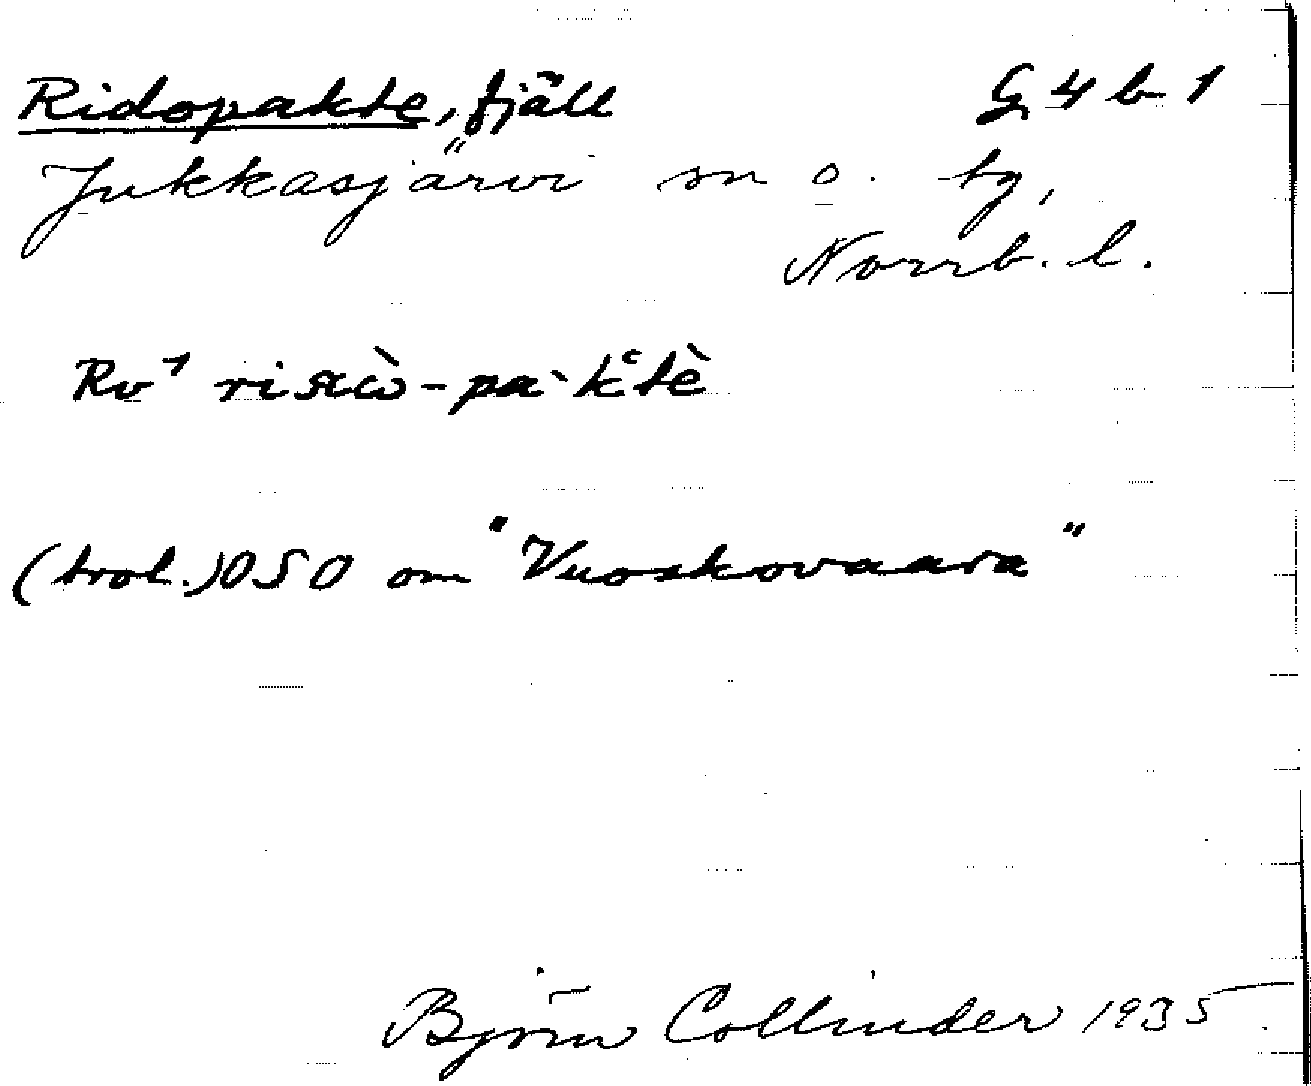 Ridopakte, fjäll G 4 b 1
Jukkasjärvi sn o. tg,
Norrb. l.
Rv 1
(trol.) OSO om "Vuoskovaara"
Björn Collinder 1935